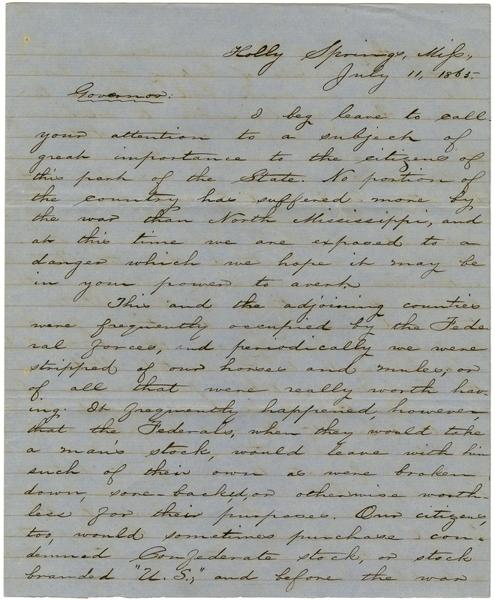 Holly Springs, Miss.,
July 11, 1865.
Governor:
I beg leave to call
your attention to a subject of
great importance to the citizens of
this part of the State. No portion of
the country has suffered more by
the war than North Mississippi, and
at this time we are exposed to a
danger which we hope it may be
in your power to avert.
This and the adjoining counties
were frequently occupied by the Fede-
ral forces, and periodically we were
stripped of our horses and mules, or
of all that were really worth hav-
ing. It frequently happened, however
that the Federals, when they would take
a man's stock, would leave with him
such of their own as were broken
down, sore-backed, or otherwise worth-
less for their purposes. Our citizens,
too, would sometimes purchase con-
demned Confederate stock, or stock
branded "U. S.," and before the war